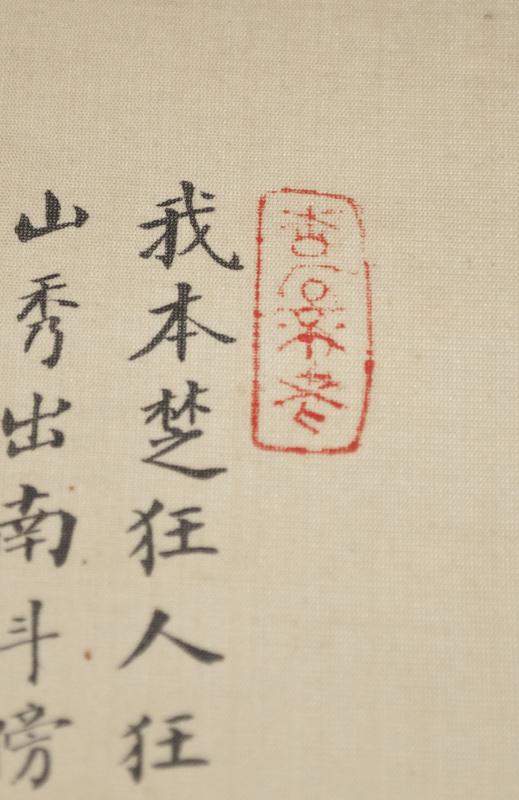 我本楚狂人狂
山秀出南斗傍